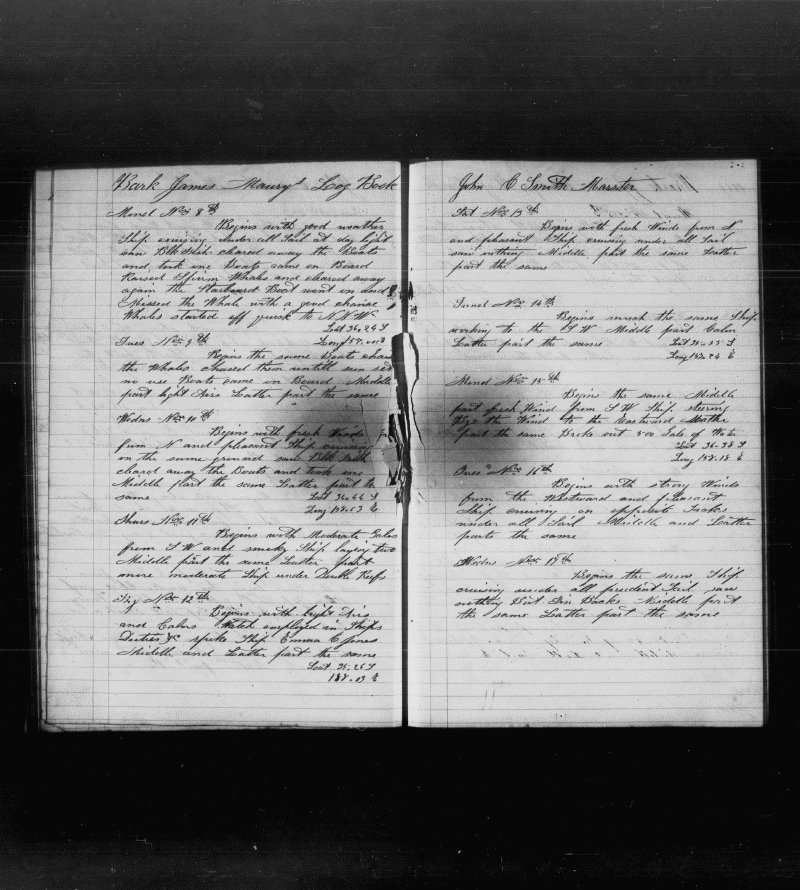 Bark James Maury's Log Book
Mond Nov 8th
Begins with good weather
Ship cruising under all Sail at day light
saw Blk Fish cleared away the Boats
and took one Boats came on Board
Raised Sperm Whales and cleared away
again the Starboard Boat went in and
Missed the Whale with a good chance
Whales started off quick to N N W
Lat 36-24 S
Tues Nov 9th
Begins the same Boats
the Whales chased them untill sun set
no use Boats came on Board Middle
part light Airs Latter part the same
Wedns Nov 10th
Begins with fresh Winds
from N and pleasant Ship cruising
on the same ground saw Blk Fish
cleared away the Boats and took one
Middle part the same Latter part the
same Lat 36-44 S
Long 158-03 E
Thurs Nov 11th
Begins with Moderate Gales
from S W and smoky Ship laying two
Middle part the same Latter part
more moderate Ship under Double Reefs
Fry Nov 12th
Begins with light Airs
and Calms Watch employed in Ships
Duties &c spoke Ship Emma C Jones
Middle and Latter part the same
Lat 35-25 S
158-03 E
John C Smith Masster
Sat Nov 13th
Begins with fresh Winds from N
and pleasant Ship cruising under all Sail
saw nothing Middle part the same Latter
part the same
Sund Nov 14th
Begins much the same Ship
working to the S W Middle part Calm
Latter part the same Lat 35-55 S
Long 158-24 E
Mond Nov 15th
Begin the same Middle
part fresh Wind from S W Ship steering
By the Wind to the Eastward Latter
part the same Broke out 500 Gals of Water
Lat 36-38 S
Long 158-18 E
Tues Nov 16th
Begins with strong Winds
from the Westward and pleasant
Ship cruising on opposite Tacks
under all Sail Middle and Latter
parts the same
Wedns Nov 17th
Begins the same Ship
cruising under all prudent Sail saw
nothing But Fin Backs Middle part
the same Latter part the same